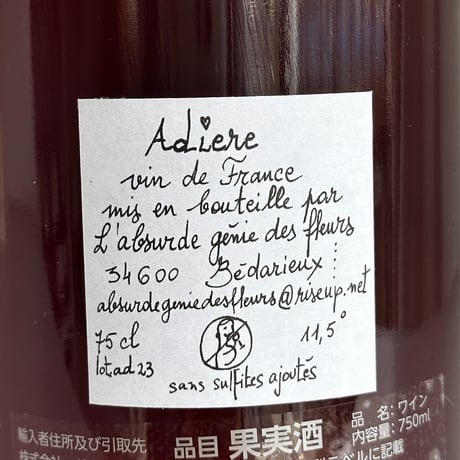 Adiere
vin de France
mis en bouteille par
L'absurde génie des fleurs
34600 Bédarieux
absurdegeniedesfleurs@riseup.net
75 cl
11,5°
lot ad 23
sans sulfites ajoutés
輸入者住所及び引取先
株式会社
品目 果実酒
品 名:ワイン
内容量:750ml
ラベルに記載